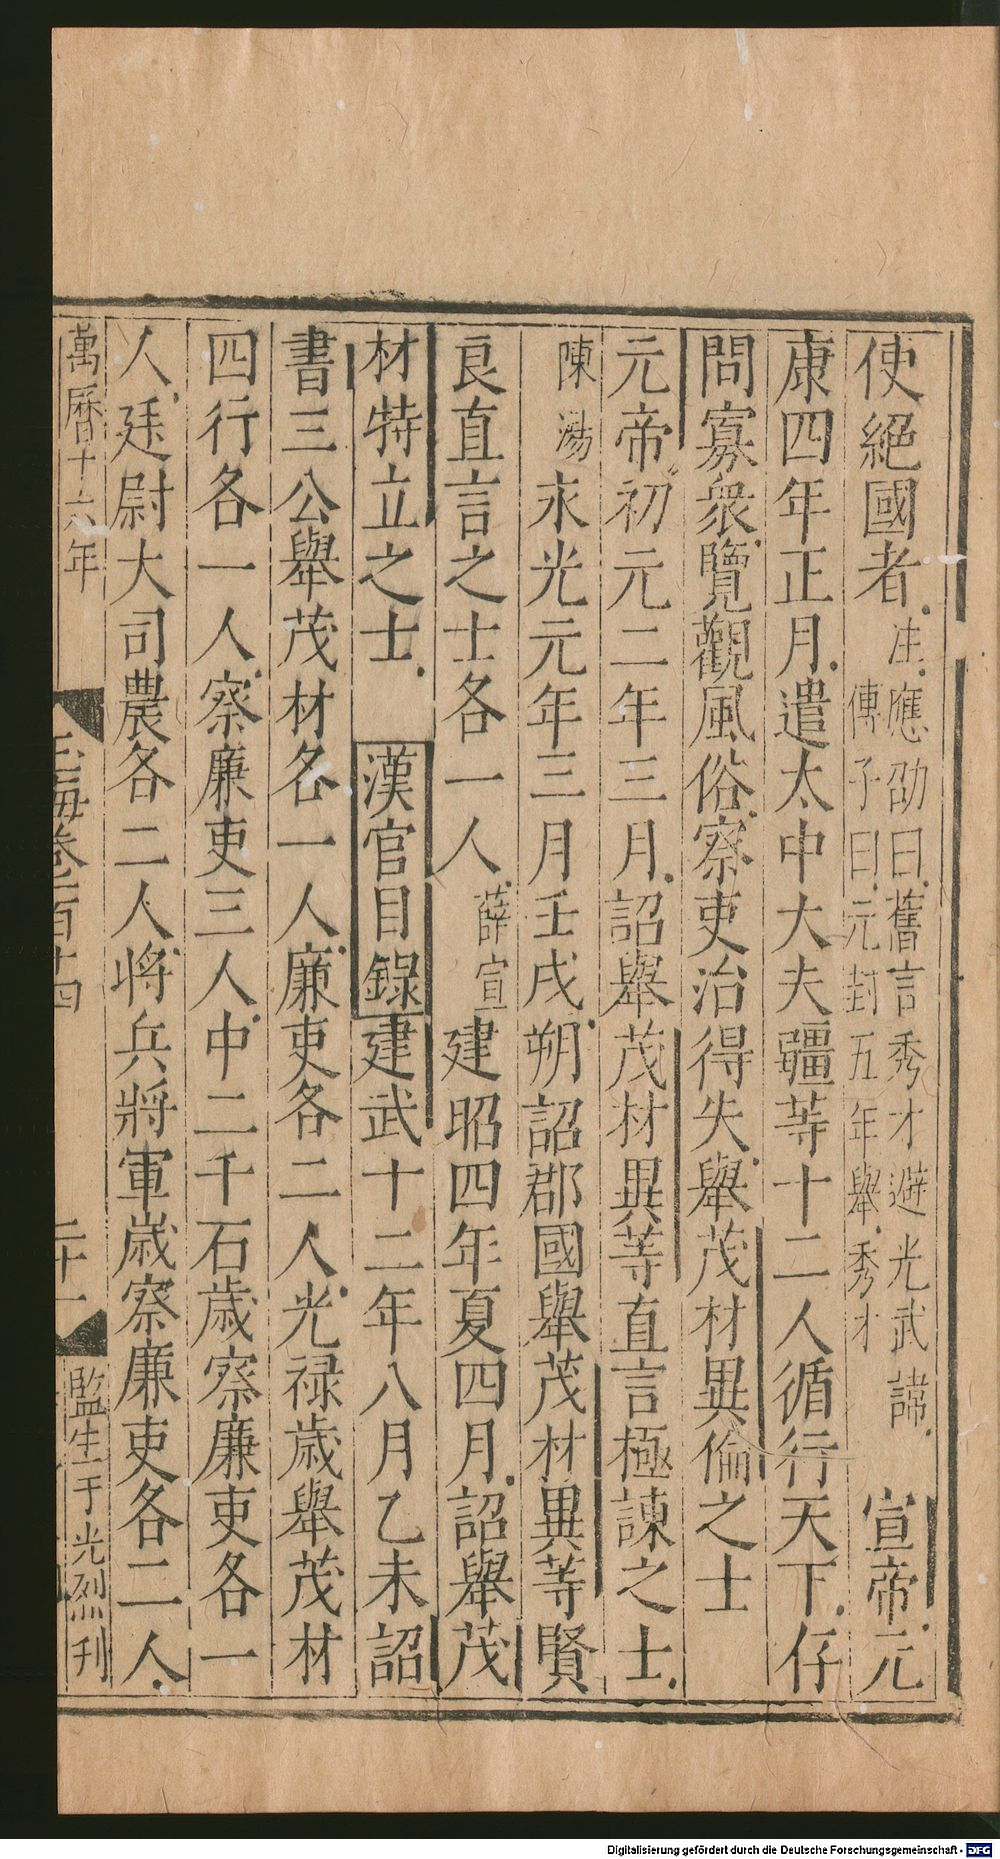 使絕國者注應劭曰舊言秀才避光武諱傳子曰元封五年舉秀才宣帝元
康四年正月遣太中大夫疆等十二人循行天下仔
問寡衆覽觀風俗察吏治得失舉茂材異倫之士
元帝初元二年三月詔舉茂材異等直言極諫之士
陳湯永光元年三月壬戌朔詔郡國舉茂材異等賢
良直言之士各一人薛宣建昭四年夏四月詔舉茂
材特立之士漢官目錄建武十二年八月乙未詔
書三公舉茂材各一人廉吏各二人光禄歲舉茂材
四行各一人察廉吏三人中二千石歲察廉吏各一
人廷尉大司農各二人將兵將軍歲察廉吏各二人
萬曆十六年
玉海卷一百十四
二十一
監生于光烈刊
Digitalisierung gefördert durch die Deutsche Forschungsgemeinschaft - DFG